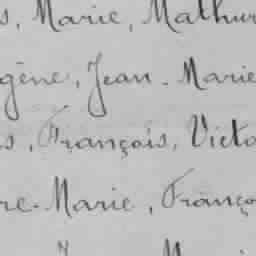 s, Marie, Mathur
gène, Jean-Marie
s, François, Victo
re-Marie, Franço